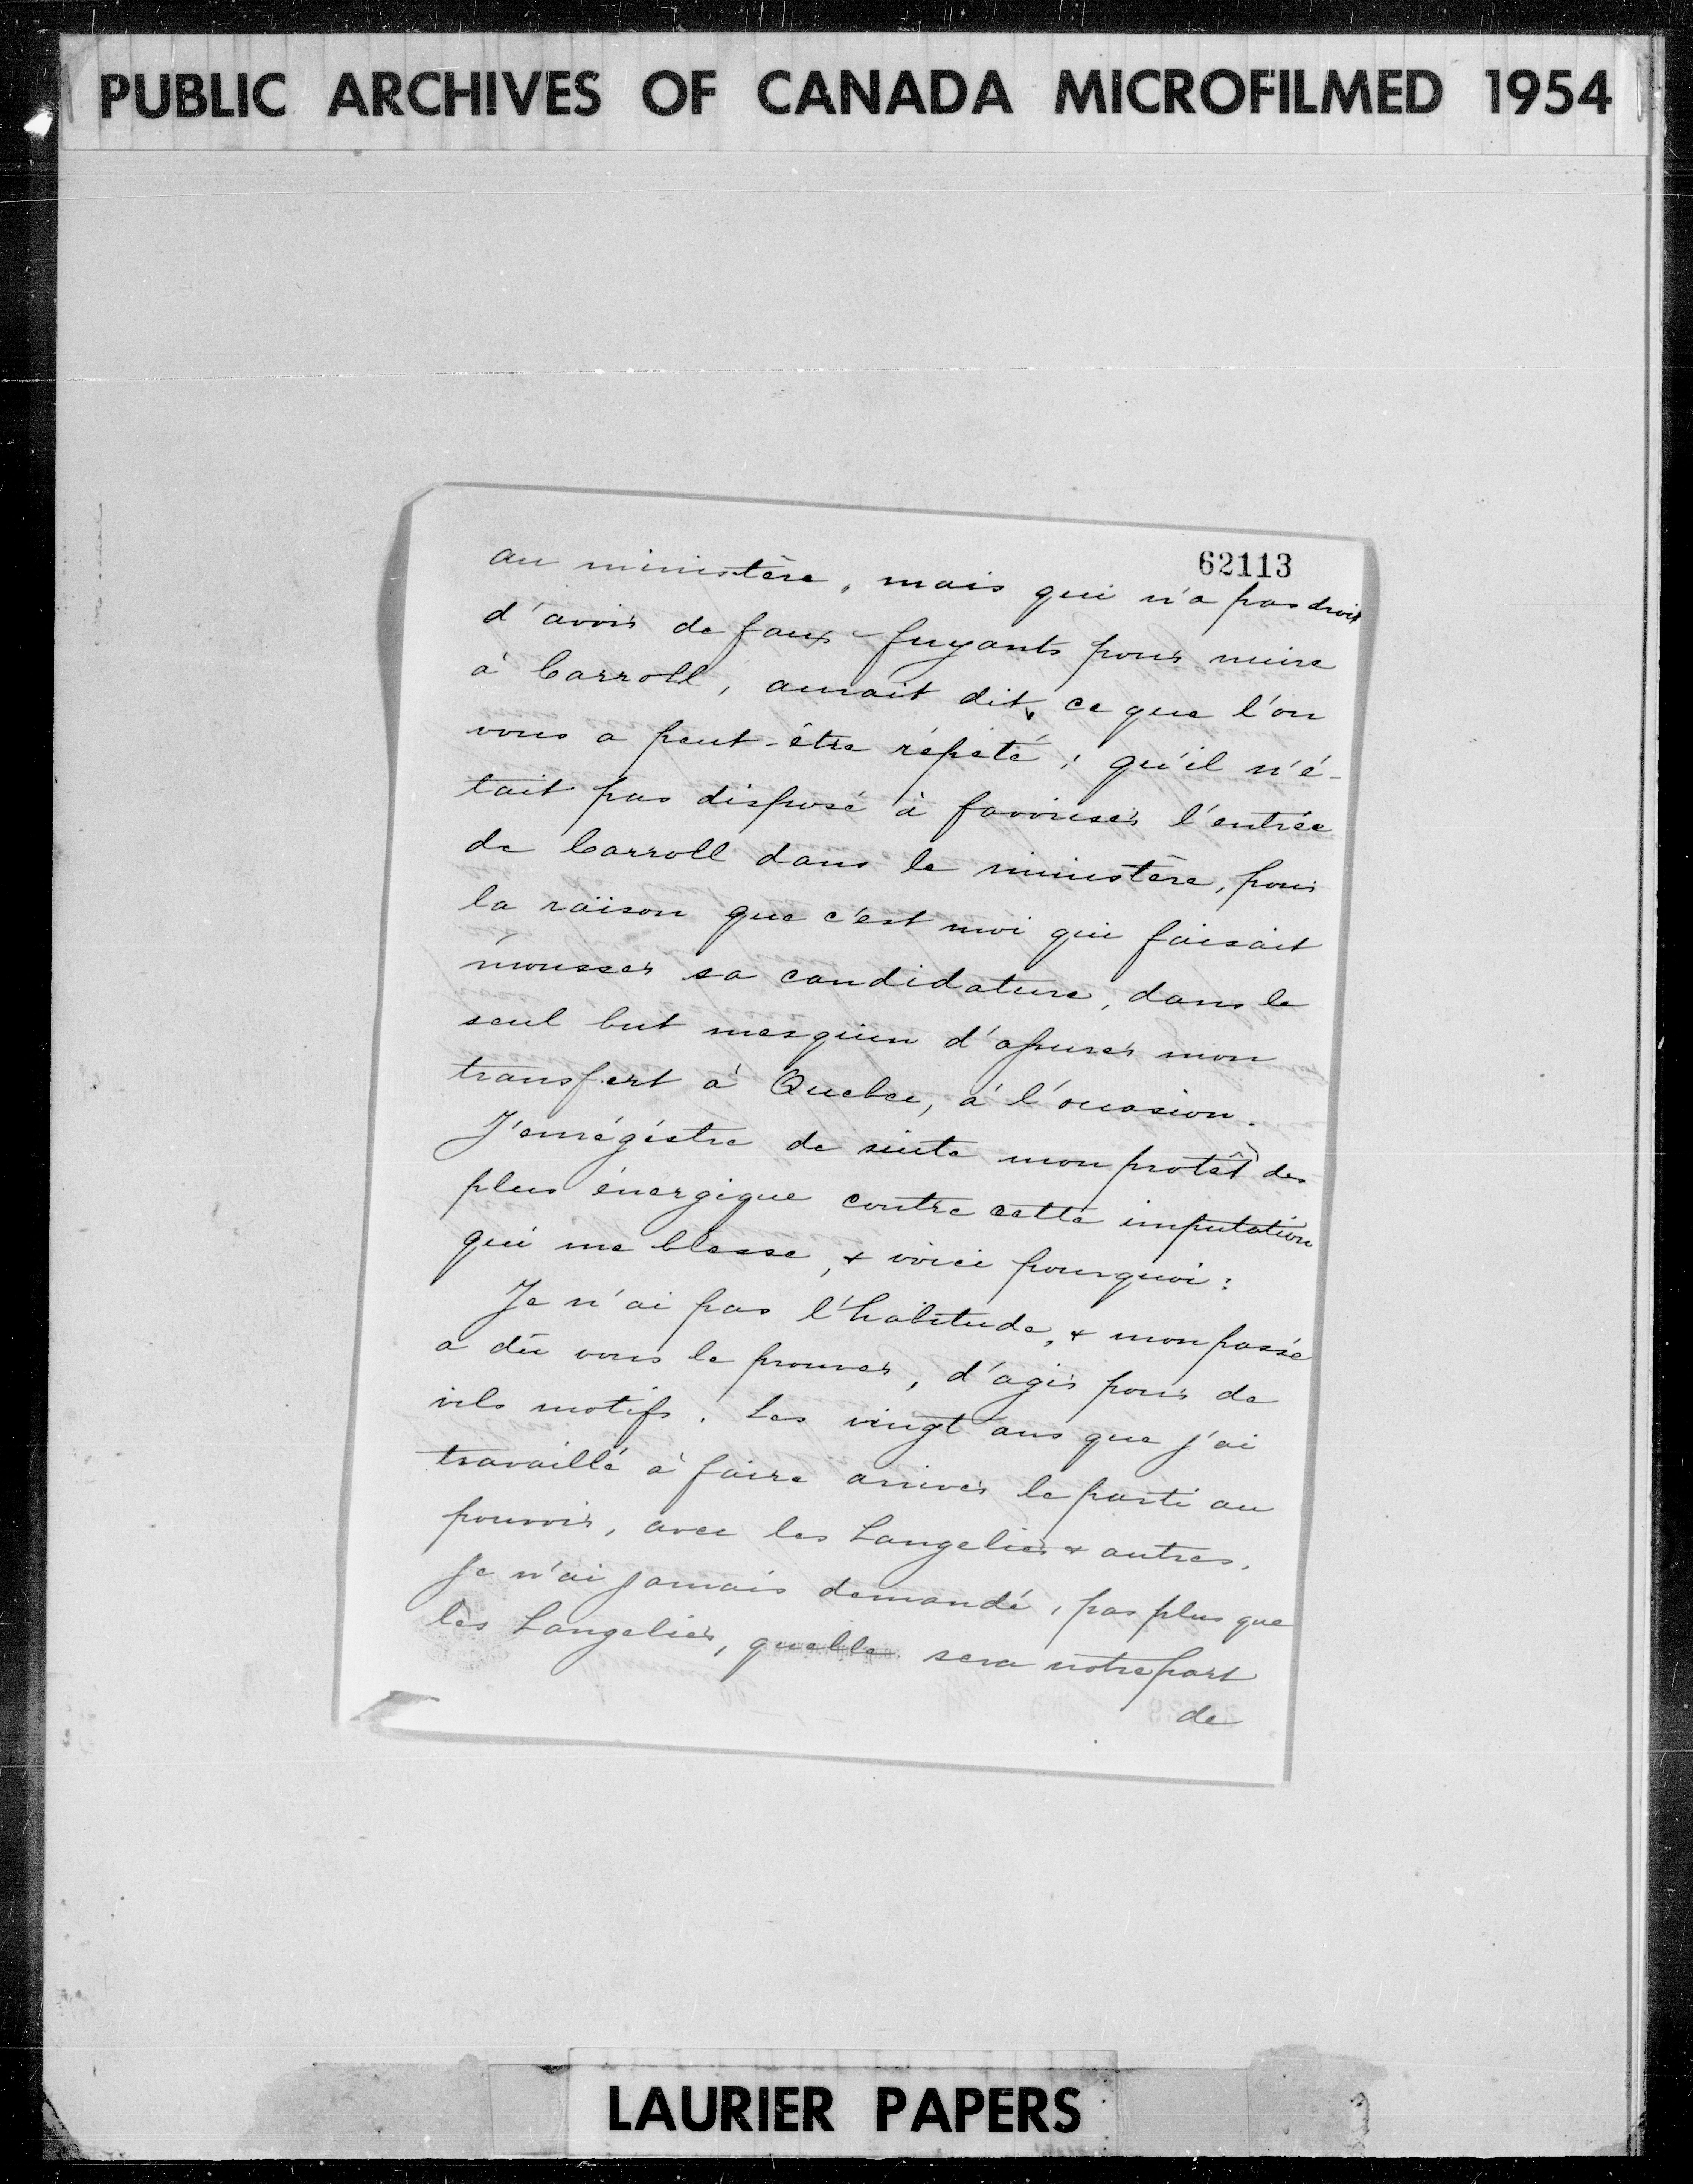 PUBLIC ARCHIVES OF CANADA MICROFILMED 1954
62113
au ministère, mais qui n'a pas droit
d'avoir de faux-fuyants pour nuire
à Carroll, aurait dit, ce que l'on
vous a peut-être répété : qu'il n'é-
tait pas disposé à favoriser l'entrée
de Carroll dans le ministère, pour
la raison que c'est moi qui faisait
mousser sa candidature, dans le
seul but mesquin d'apurer mon
transfert à Quebec, à l'occasion.
J'enrégistre de suite mon protêt des
plus énergique contre cette imputation
qui me blesse, & voici pourquoi :
Je n'ai pas l'habitude, & mon passé
a dû vous le prouver, d'agir pour de
vils motifs. Les vingt ans que j'ai
travaillé à faire arriver le parti au
pouvoir, avec les Langelier & autres,
je n'ai jamais demandé, pas plus que
les Langelier, quelle sera notre part
de
LAURIER PAPERS